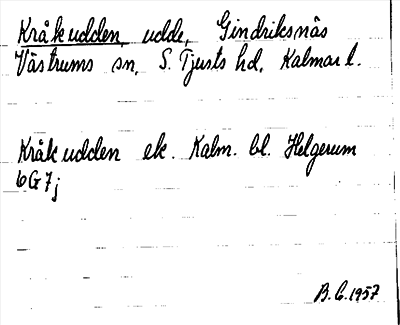 Kråkudden, udde, Gindriksnäs
Västrums sn, S. Tjusts hd, Kalmar l.
Kråkudden ek. Kalm. bl. Helgerum
6G7j
B.C.1957